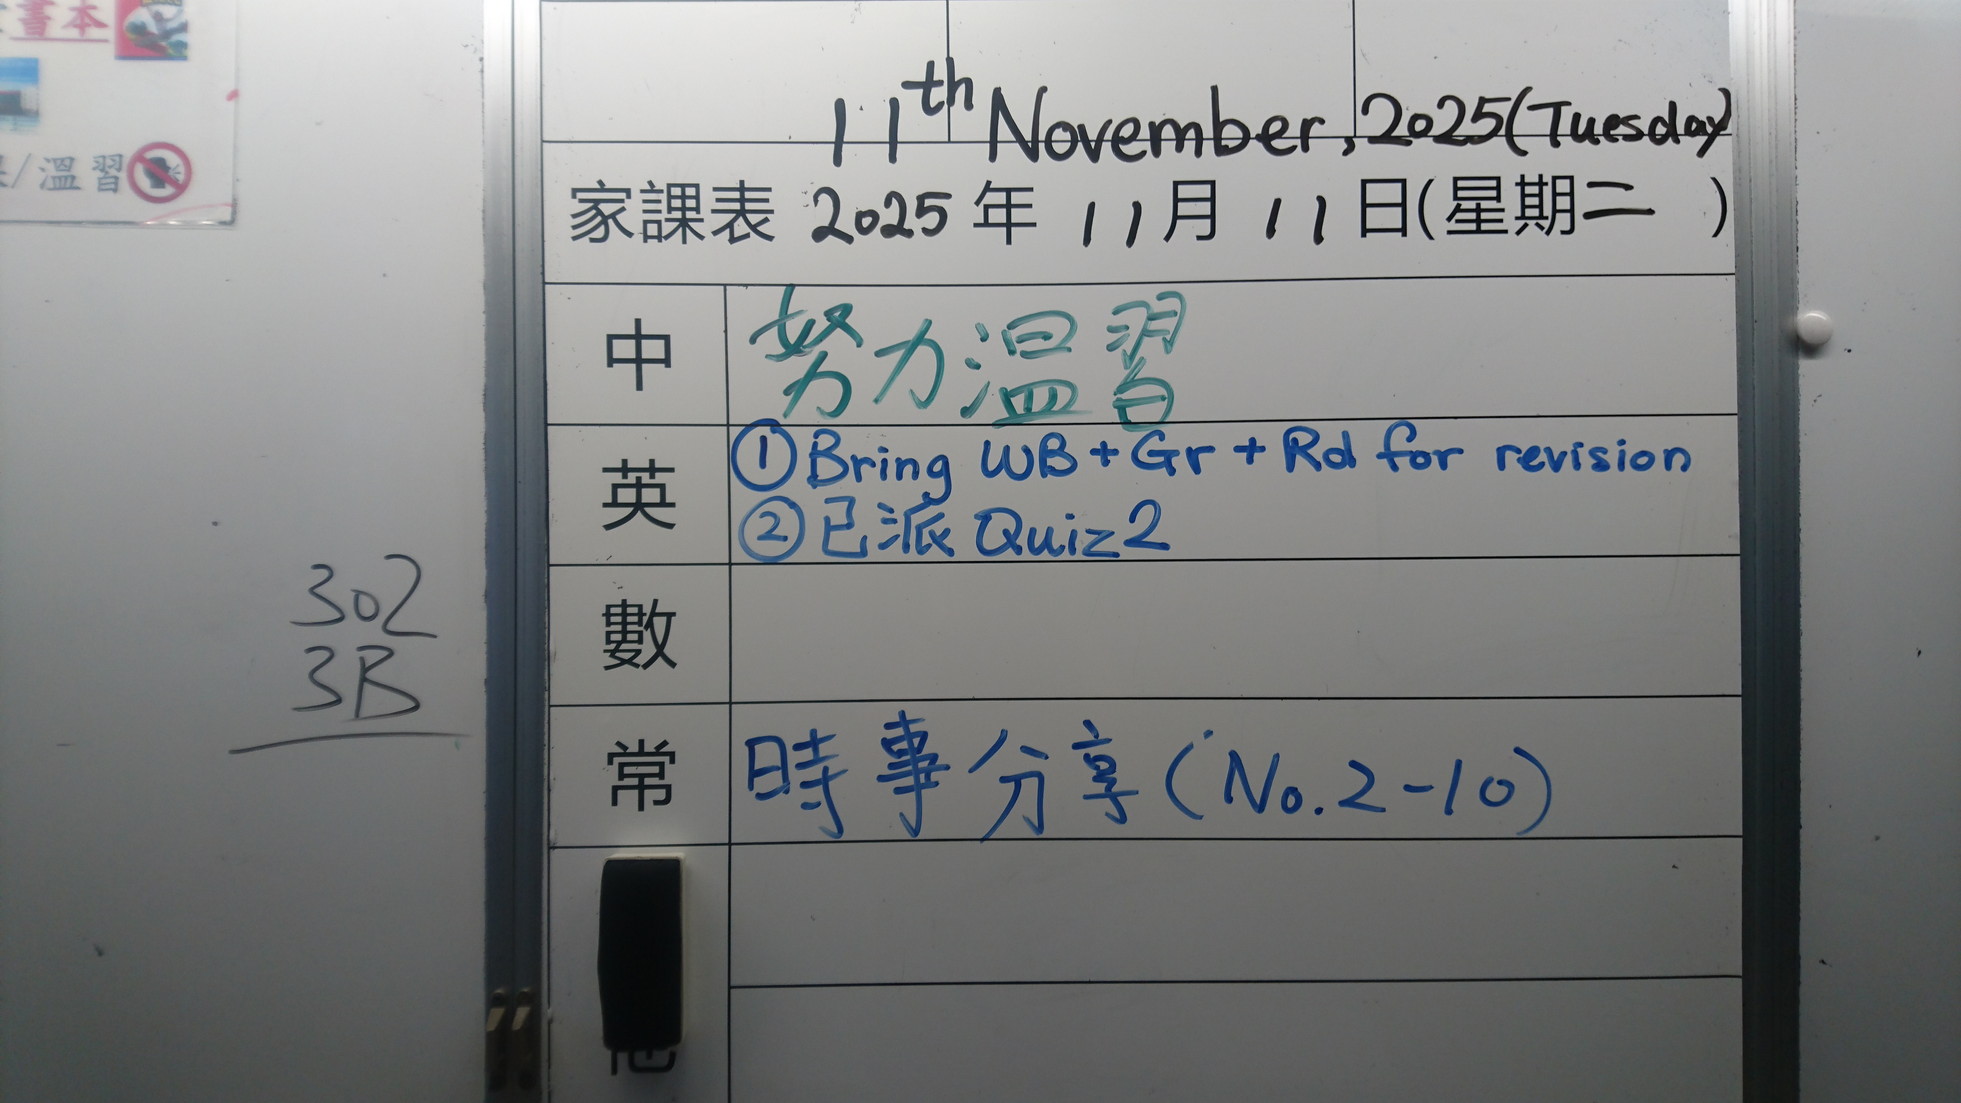 書本
/溫習
11th November, 2025(Tuesday)
家課表 2025 年 11 月 11 日(星期二 )
中 努力溫習
英 ①Bring WB+Gr+Rd for revision
②已派 Quiz2
數
常 時事分享(No.2-10)
302
3B